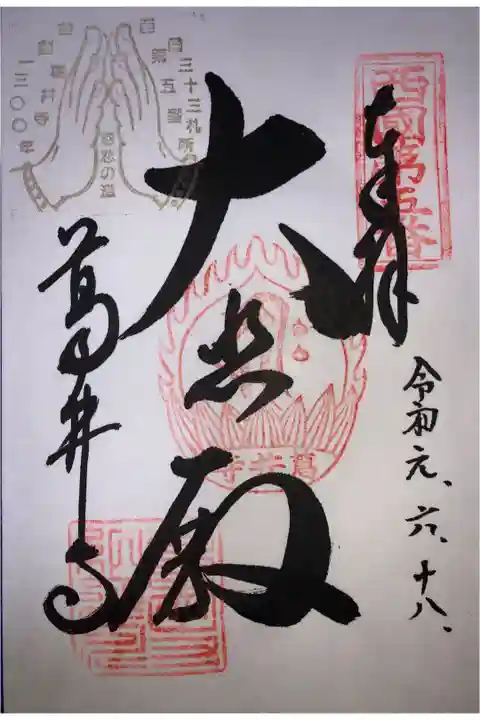 奉拝
西國第五番
令和元、六、十八、
大悲殿
葛井寺
葛井寺
三十三札所
第五番
葛井寺
一三〇〇年
慈悲の道